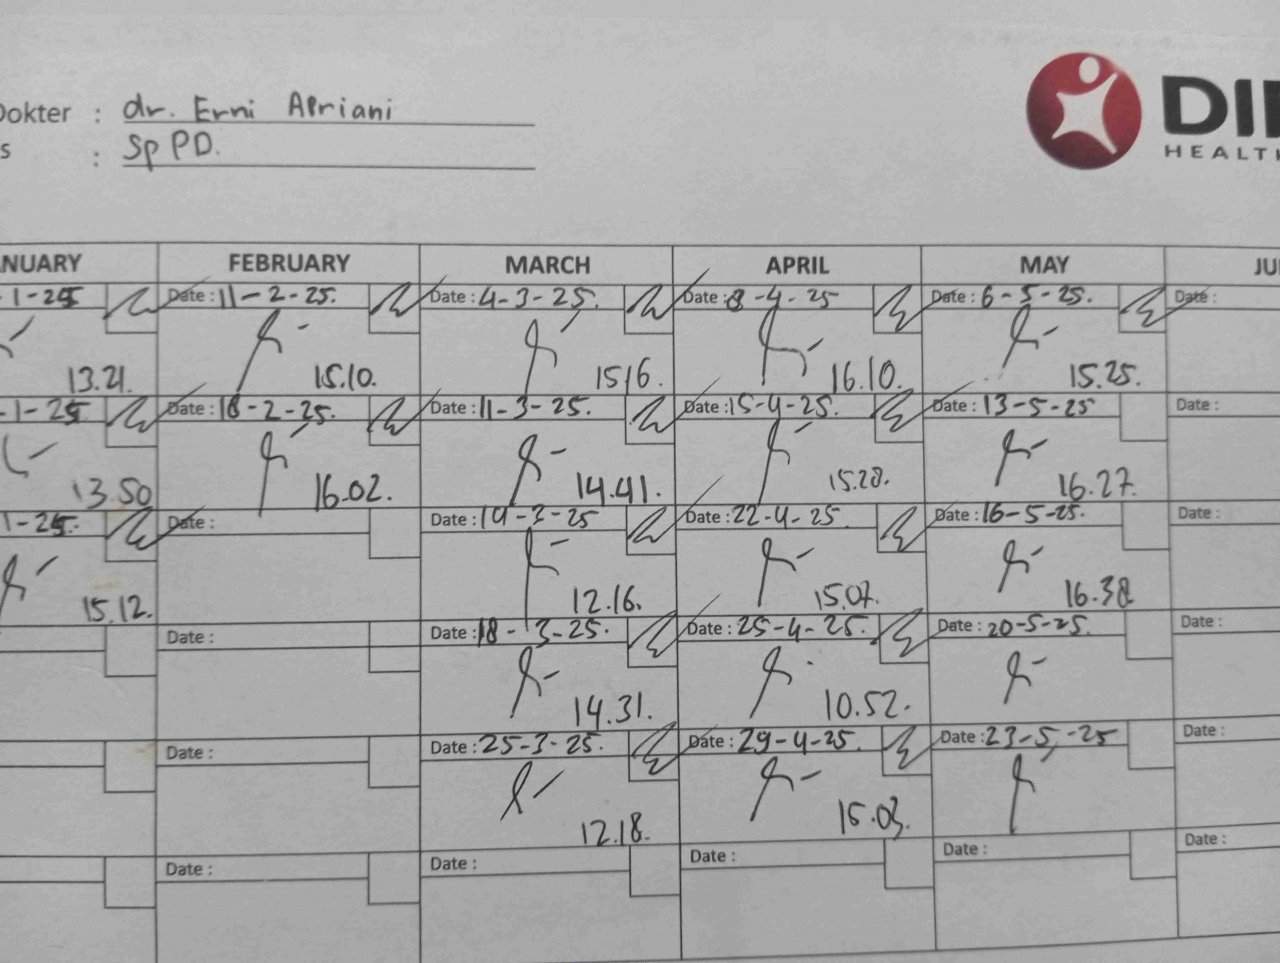 Dokter : dr. Erni Apriani
s : Sp PD.
DIE
HEALTH
NUARY FEBRUARY MARCH APRIL MAY JU
-1-25 Date : 11-2-25. Date : 4-3-25. Date : 8-4-25 Date : 6-5-25. Date :
13.21. 15.10. 15 16. 16.10. 15.25.
-1-25 Date : 18-2-25. Date : 11-3-25. Date : 15-4-25. Date : 13-5-25 Date :
13.50 16.02. 14.41. 15.28. 16.27.
1-25. Date : Date : 14-3-25 Date : 22-4-25. Date : 16-5-25. Date :
15.12. 12.16. 15.07. 16.38
Date : Date : 18-3-25. Date : 25-4-25. Date : 20-5-25. Date :
14.31. 10.52.
Date : Date : 25-3-25. Date : 29-4-25. Date : 23-5-25 Date :
12.18. 15.03.
Date : Date : Date : Date : Date :